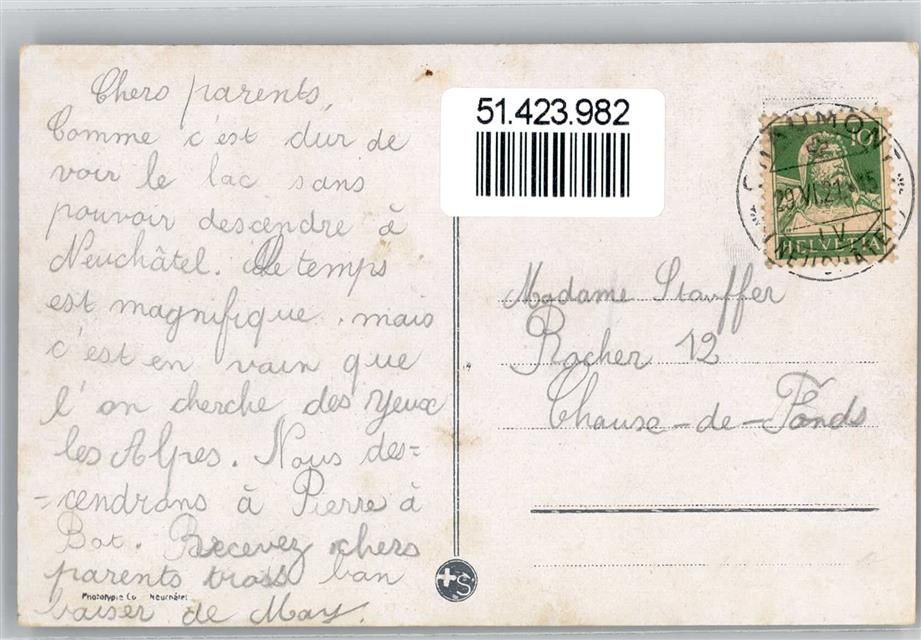 Chers parents,
Comme c'est dur de
voir le lac sans
pouvoir descendre à
Neuchâtel. Le temps
est magnifique, mais
c'est en vain que
l'on cherche des yeux
les Alpes. Nous des=
=cendrons à Pierre à
Bot. Recevez chers
parents bon
baiser de May.
Phototypie Co Neuchâtel
51.423.982
CHAUMONT
29.VI.21
NEUCHATEL
10
HELVETIA
Madame Stauffer
Rocher 12
Chaux-de-Fonds
S